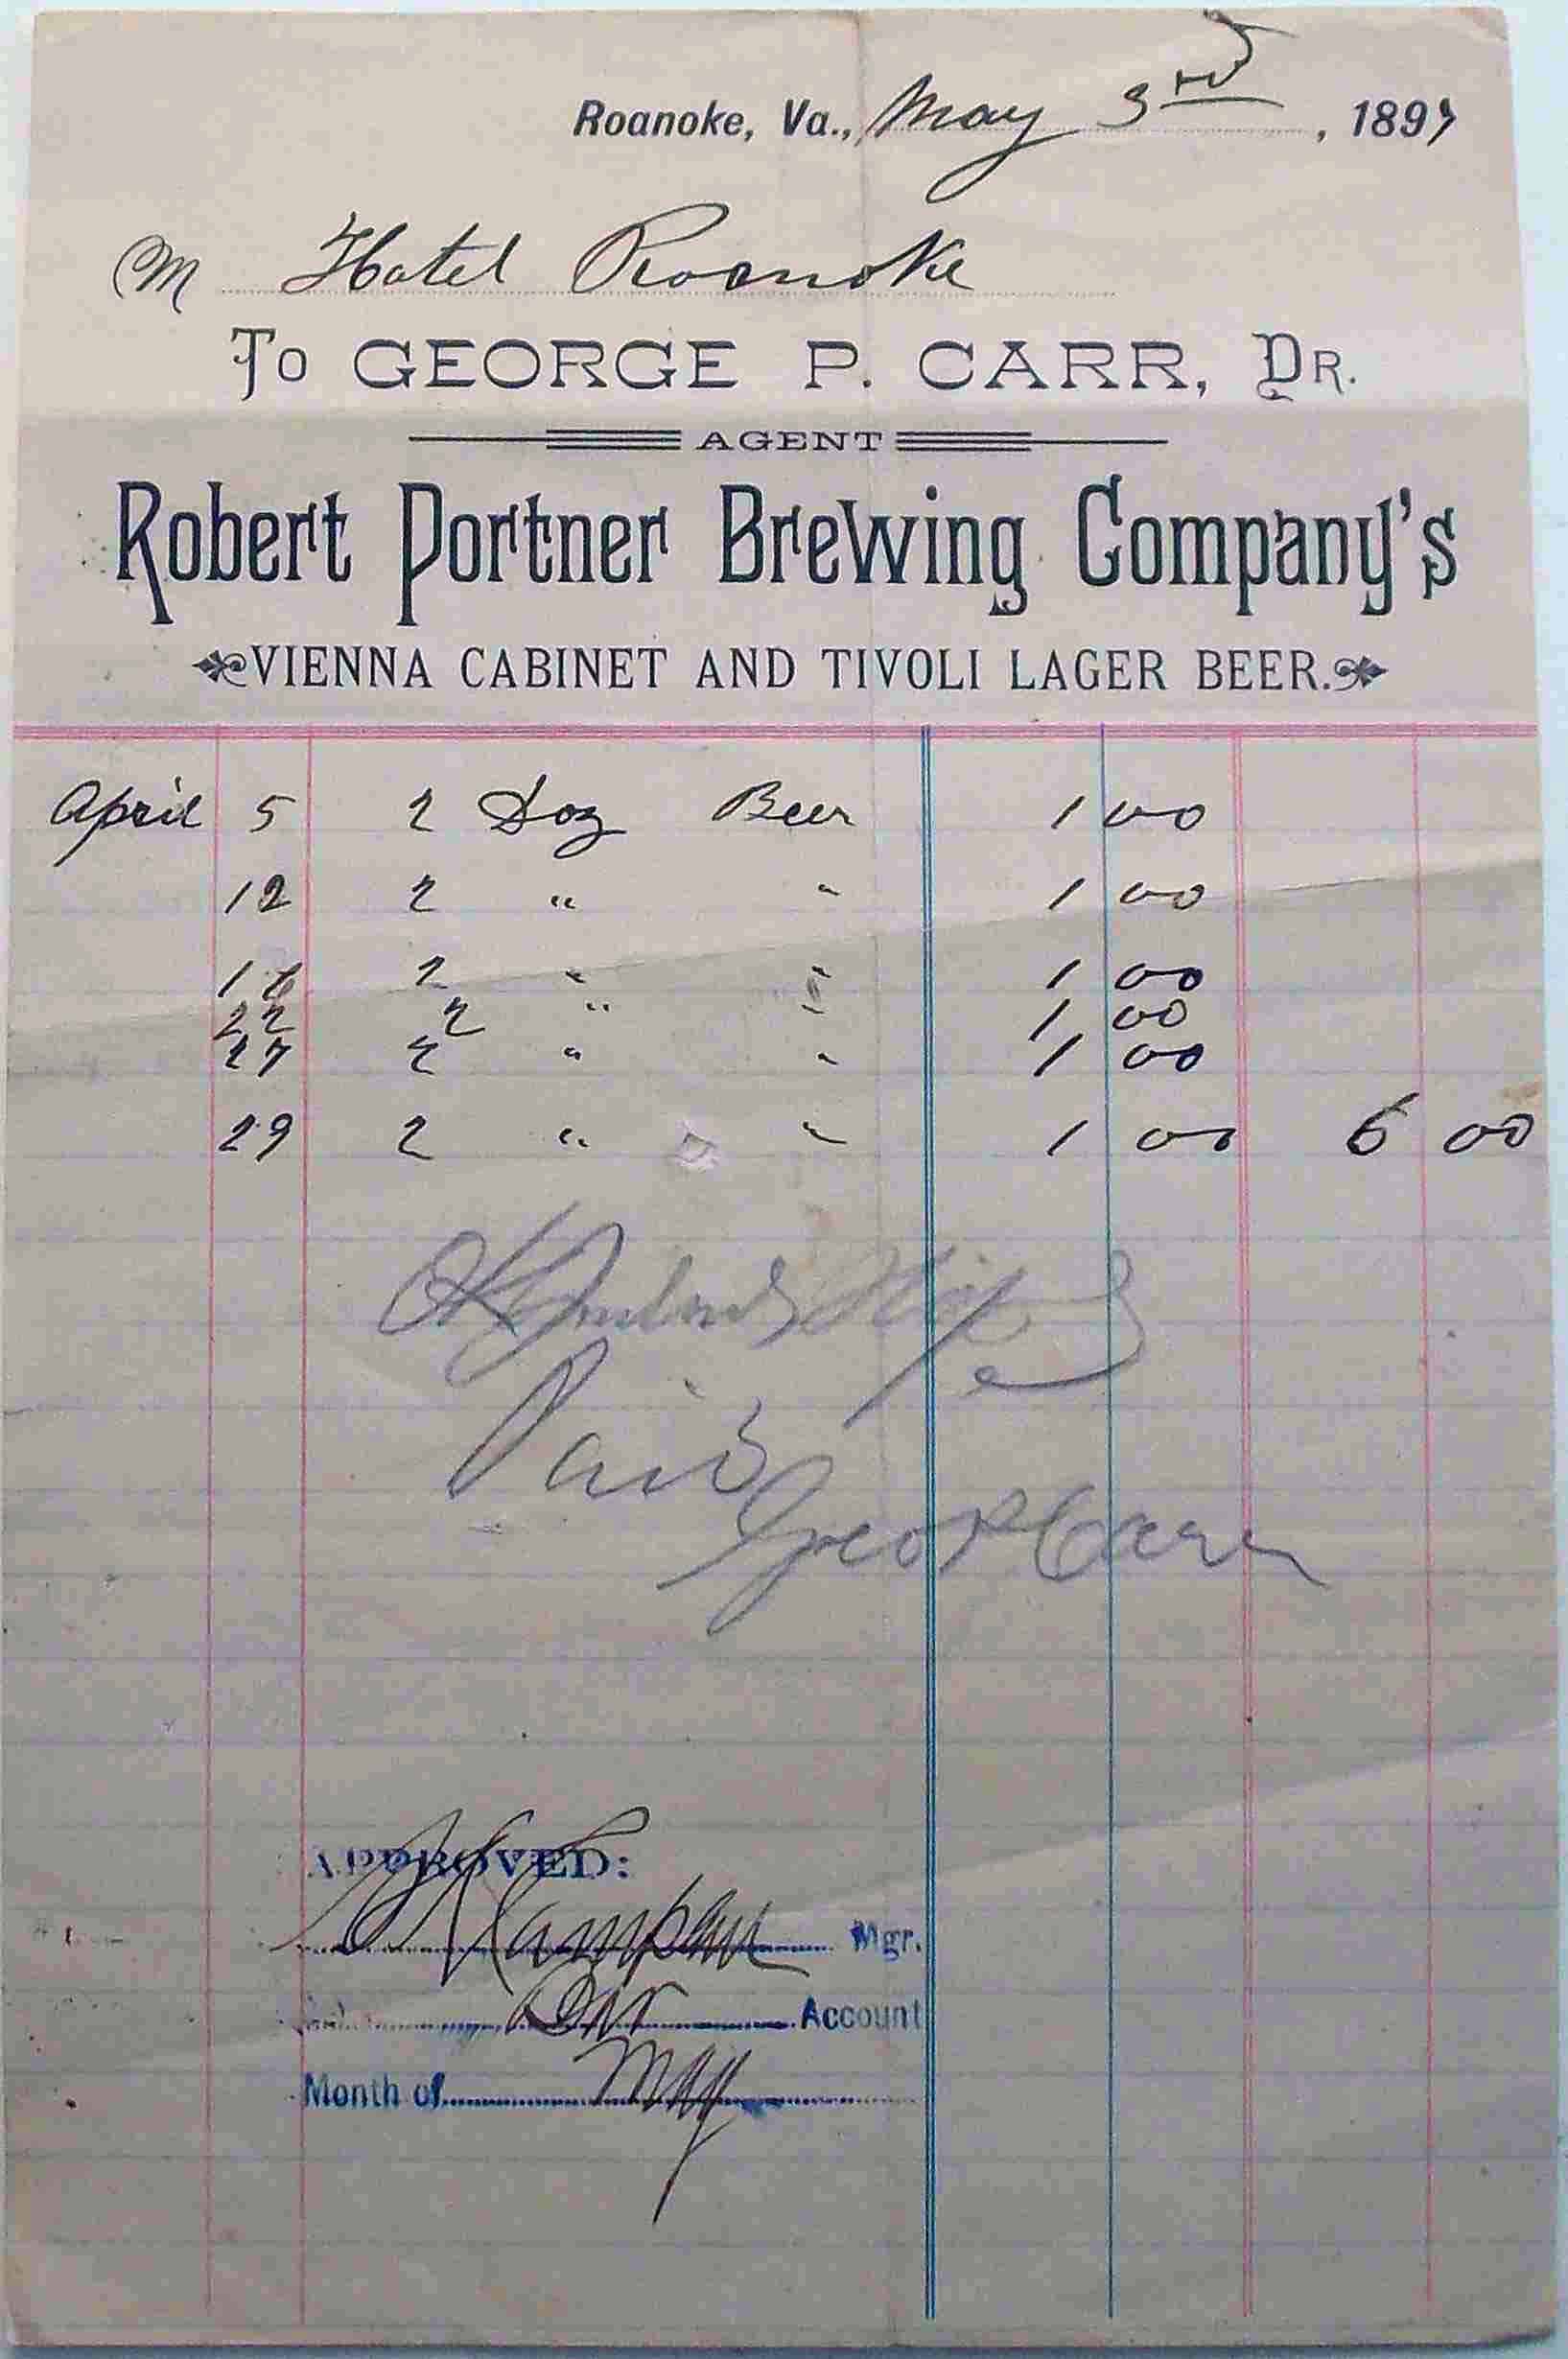 Roanoke, Va., May 3rd, 1897
M Hotel Roanoke
To GEORGE P. CARR, DR.
AGENT
Robert Portner Brewing Company's
VIENNA CABINET AND TIVOLI LAGER BEER.
April 5 2 Doz Beer 1 00
12 2 " " 1 00
16 2 " " 1 00
22 2 " " 1 00
27 2 " " 1 00
29 2 " " 1 00 6 00
OK
Paid
Geo P Carr
APPROVED:
Mgr.
Account
Month of May